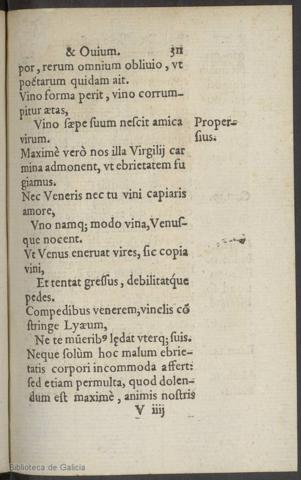 & Ouium. 311
por, rerum omnium obliuio, vt
poëtarum quidam ait.
Vino forma perit, vino corrum-
pitur ætas,
Vino sæpe suum nescit amica Proper-
virum. sius.
Maximè verò nos illa Virgilij car
mina admonent, vt ebrietatem fu
giamus.
Nec Veneris nec tu vini capiaris
amore,
Vno namq; modo vina, Venus-
que nocent.
Vt Venus eneruat vires, sic copia
vini,
Et tentat gressus, debilitatq́ue
pedes.
Compedibus venerem, vinclis cõ
stringe Lyæum,
Ne te mũeribꝰ lędat vterq; suis.
Neque solùm hoc malum ebrie-
tatis corpori incommoda affert:
sed etiam permulta, quod dolen-
dum est maximè, animis nostris
V iiij
Biblioteca de Galicia